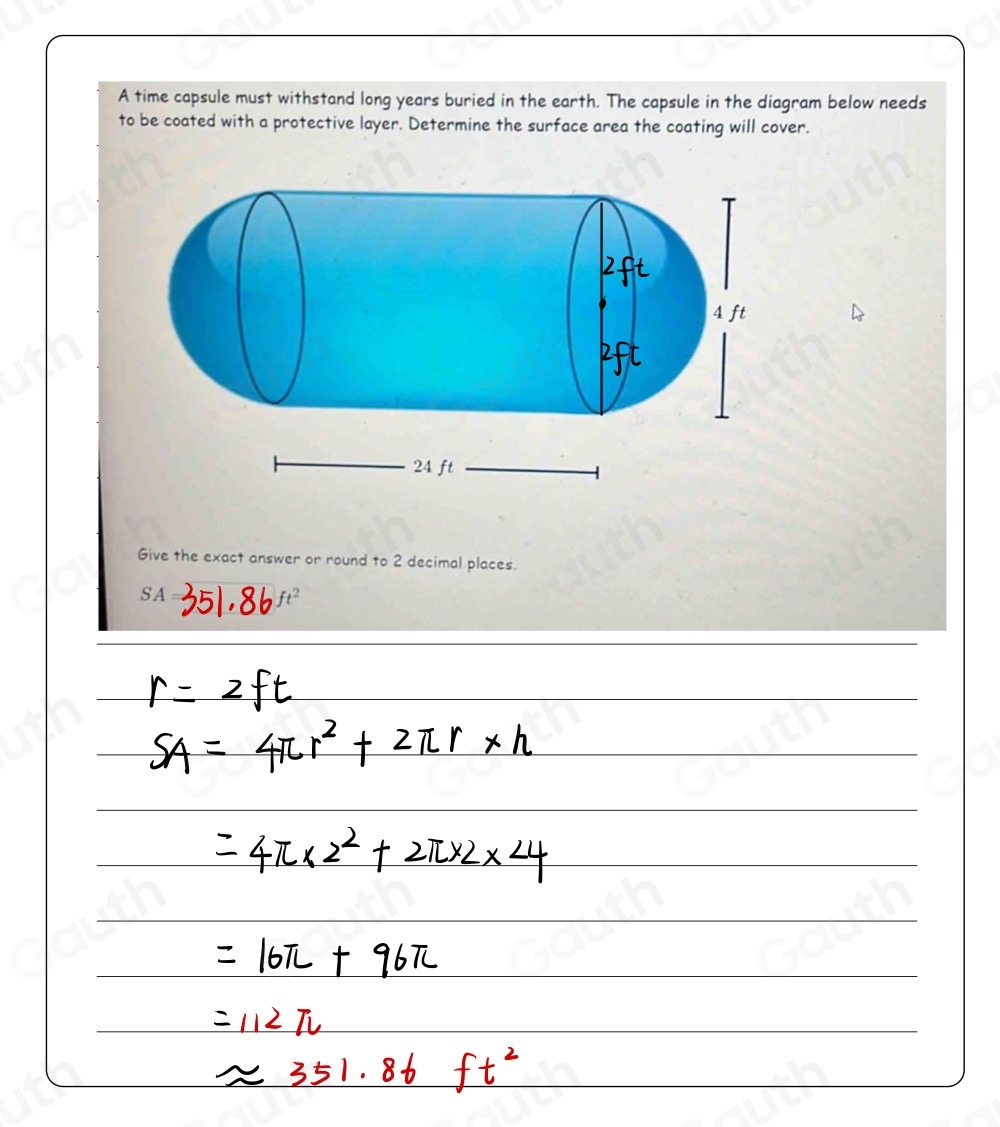 A time capsule must withstand long years buried in the earth. The capsule in the diagram below needs
to be coated with a protective layer. Determine the surface area the coating will cover.
2ft
4 ft
2ft
24 ft
Give the exact answer or round to 2 decimal places.
SA = 351.86 ft²
r = 2ft
SA = 4πr² + 2πr × h
= 4π × 2² + 2π×2×24
= 16π + 96π
= 112π
≈ 351.86 ft²
Gauth